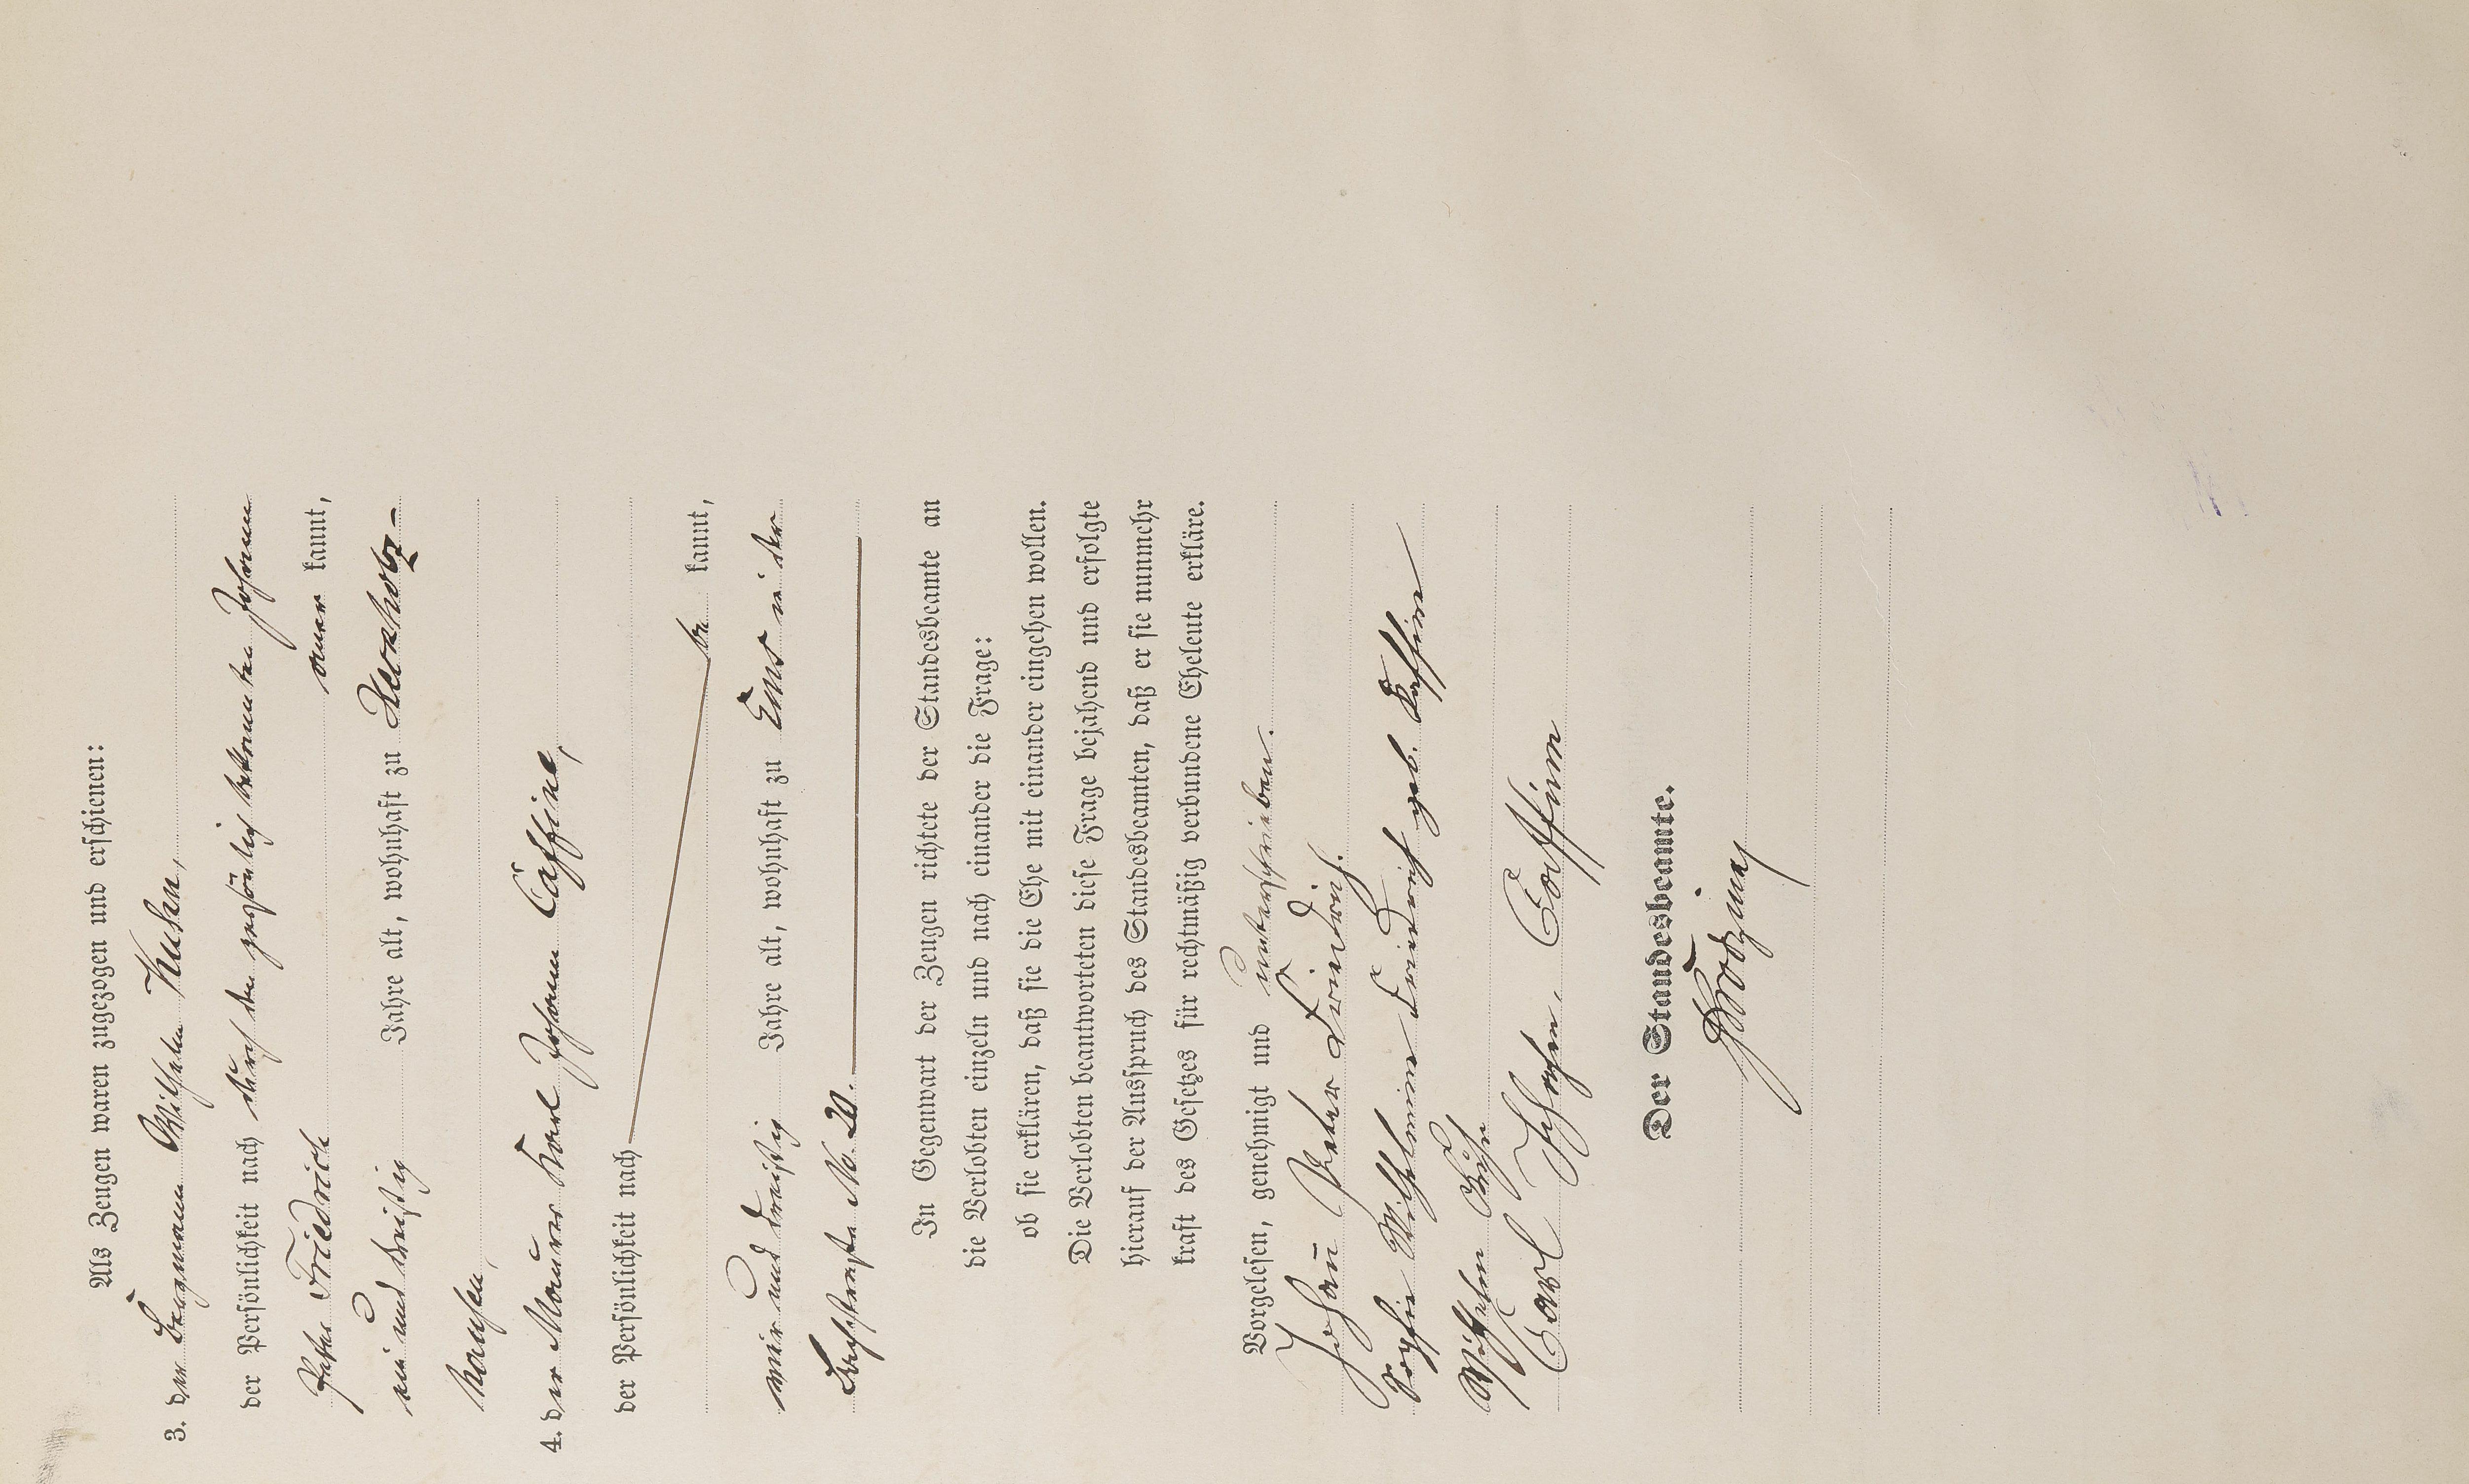 Als Zeugen waren zugezogen und erschienen:
3. der Bergmann Wilhelm Kuhn,
der Persönlichkeit nach durch den persönlich bekannten Johann
Peter Friedrich aner kannt,
ein und dreißig Jahre alt, wohnhaft zu
hausen,
4. der Maurer Karl Johann Caffine,
der Persönlichkeit nach
be kannt,
vier und dreißig Jahre alt, wohnhaft zu Ems in der
No. 20.
In Gegenwart der Zeugen richtete der Standesbeamte an
die Verlobten einzeln und nach einander die Frage:
ob sie erklären, daß sie die Ehe mit einander eingehen wollen.
Die Verlobten beantworteten diese Frage bejahend und erfolgte
hierauf der Ausspruch des Standesbeamten, daß er sie nunmehr
kraft des Gesetzes für rechtmäßig verbundene Eheleute erkläre.
Vorgelesen, genehmigt und unterschrieben.
Johann Peter Friedrich.
Sophie Wilhelmine Friedrich geb. Kaffine
Wilhelm Kuhn
Carl Johann Caffine
Der Standesbeamte.